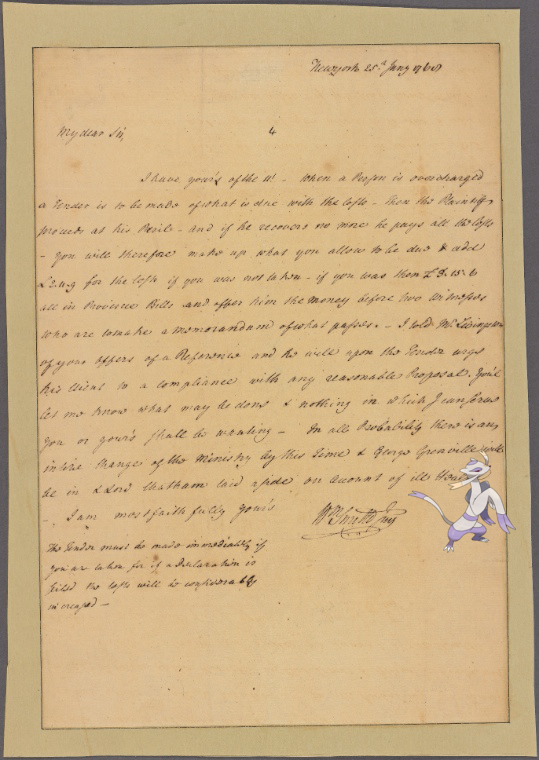 New york 25th Jany 1768
My dear Sir,
4
I have your's of the - When a Person is overcharged
a Tender is to be made of what is due with the Costs - then the Plaintiff
proceeds at his Peril - and if he recovers no more he pays all the Costs
- you will therefore make up what you allow to be due & add
for the Costs if you was not taken - if you was then
all in Province Bills and offer him the Money before two Witnesses
who are to make a memorandum of what passes. - I told Mr Livingston
of your offers of a Reference and he will upon the Tender urge
his Client to a compliance with any reasonable Proposal. You'l
let me know what may be done & nothing in which I can serve
you or your's shall be wanting - In all Probability there is an
intire Change of the Ministry by this Time & George Grenville
be in & Lord Chatham laid aside on Account of ill
I am most faithfully your's
Wm Smith Junr
The Tender must be made immediately if
you are taken for if a Declaration is
filed the Costs will be considerably
increased -